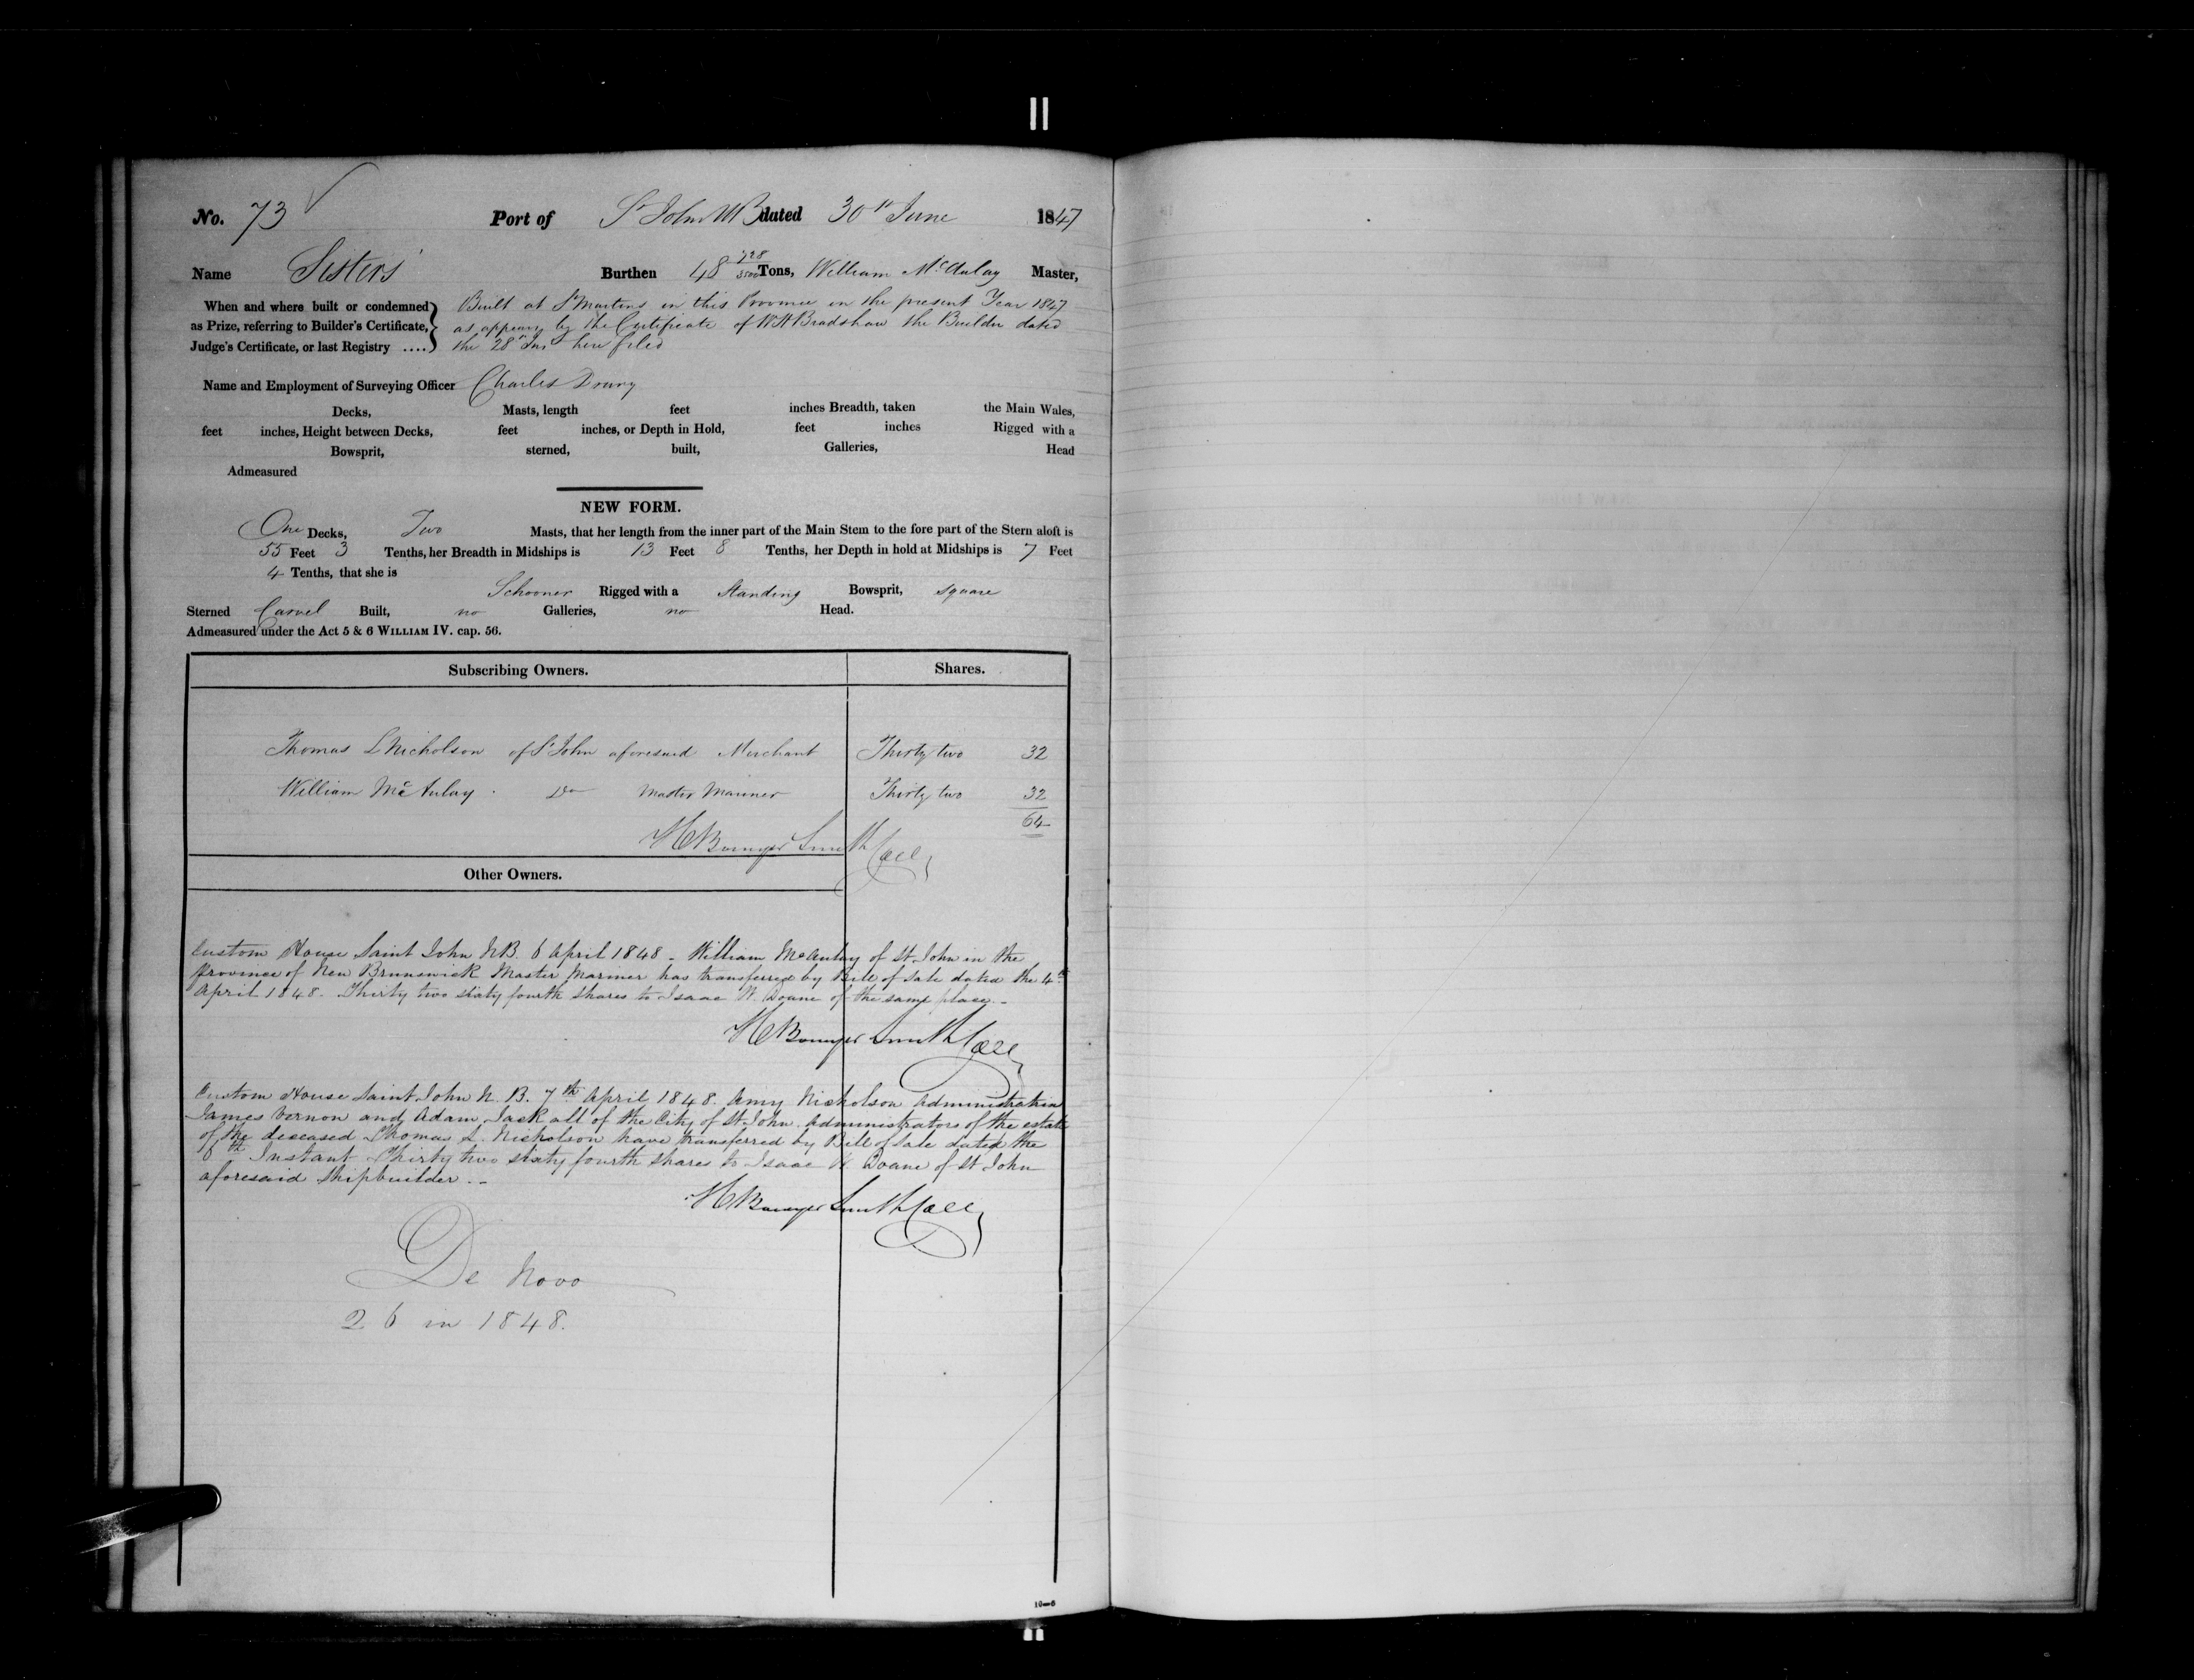 No. 73 Port of St John NB dated 30th June 1847
Name Sisters Burthen 48 728/3500 Tons, William McAulay Master,
When and where built or condemned as Prize, referring to Builder's Certificate, Judge's Certificate, or last Registry ....
Built at St Martins in this Province in the present Year 1847
as appears by the Certificate of W H Bradshaw the Builder dated
the 28th Inst here filed
Name and Employment of Surveying Officer Charles Drury
Decks, Masts, length feet inches Breadth, taken the Main Wales,
feet inches, Height between Decks, feet inches, or Depth in Hold, feet inches Rigged with a
Bowsprit, sterned, built, Galleries, Head
Admeasured
NEW FORM.
One Decks, Two Masts, that her length from the inner part of the Main Stem to the fore part of the Stern aloft is
55 Feet 3 Tenths, her Breadth in Midships is 13 Feet 8 Tenths, her Depth in hold at Midships is 7 Feet
4 Tenths, that she is
Schooner Rigged with a Standing Bowsprit, square
Sterned Carvel Built, no Galleries, no Head.
Admeasured under the Act 5 & 6 WILLIAM IV. cap. 56.
Subscribing Owners. Shares.
Thomas L Nicholson of St John aforesaid Merchant Thirty two 32
William McAulay Do Master Mariner Thirty two 32
64
H Bowyer Smith Coll
Other Owners.
Custom House Saint John N.B. 6 April 1848 - William McAulay of St. John in the
Province of New Brunswick Master Mariner has transferred by Bill of Sale dated the 4th
April 1848. Thirty two sixty fourth shares to Isaac W. Doane of the same place.-
H Bowyer Smith Coll
Custom House Saint John N. B. 7th April 1848. Amy Nicholson Administratrix
James Vernon and Adam Jack all of the City of St. John. Administrators of the estate
of the deceased Thomas L. Nicholson have transferred by Bill of Sale dated the
6th Instant Thirty two sixty fourth shares to Isaac W. Doane of St John
aforesaid Shipbuilder.-
H Bowyer Smith Coll
De Novo
26 in 1848.
10-6